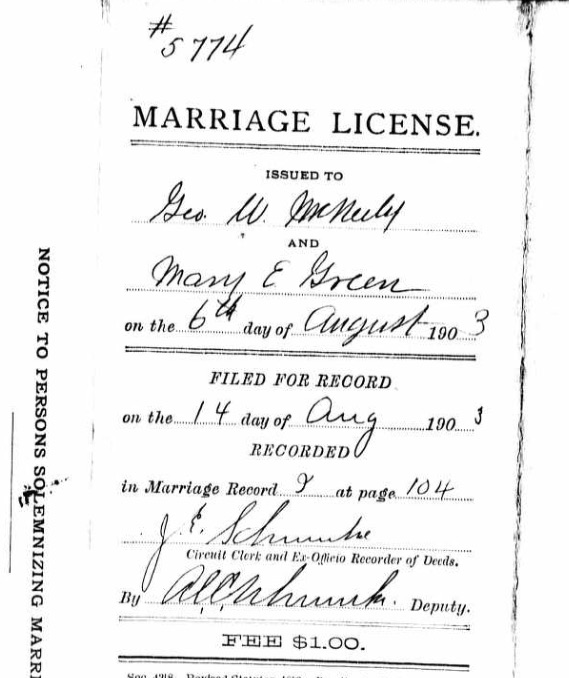 #5774
MARRIAGE LICENSE.
ISSUED TO
Geo. W. McNeely
AND
Mary E Green
on the 6th day of August 1903
FILED FOR RECORD
on the 14 day of Aug 1903
RECORDED
in Marriage Record at page 104
J. E.
Circuit Clerk and Ex-Officio Recorder of Deeds.
By Deputy.
FEE $1.00.
NOTICE TO PERSONS SOLEMNIZING